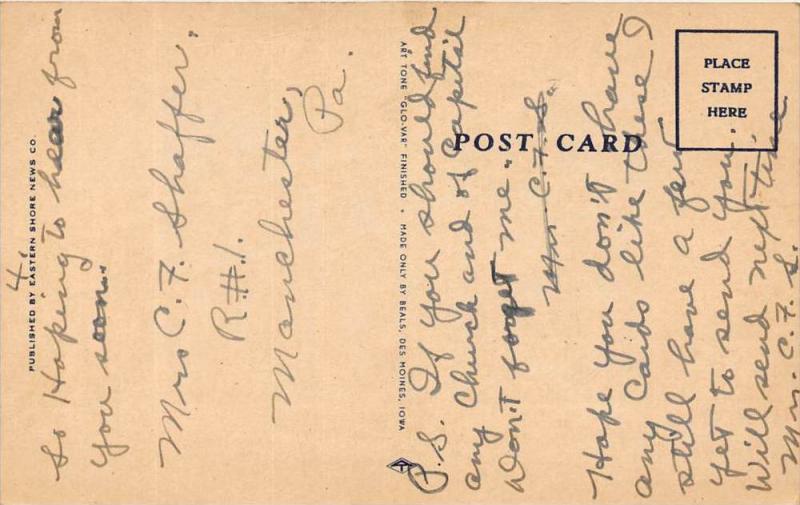 4.
So Hoping to hear from
you soon.
Mrs C. F. Shaffer.
R#1.
Manchester,
Pa.
P.S. If you should find
any Church and or Capital
Won't forget me.
Mrs C. F. S.
Hope you don't have
any Cards like these I
still have a few
yet to send you.
Will send next time.
Mrs. C. F. S.
POST CARD
PLACE
STAMP
HERE
PUBLISHED BY EASTERN SHORE NEWS CO.
ART TONE "GLO-VAR" FINISHED • MADE ONLY BY BEALS, DES MOINES, IOWA